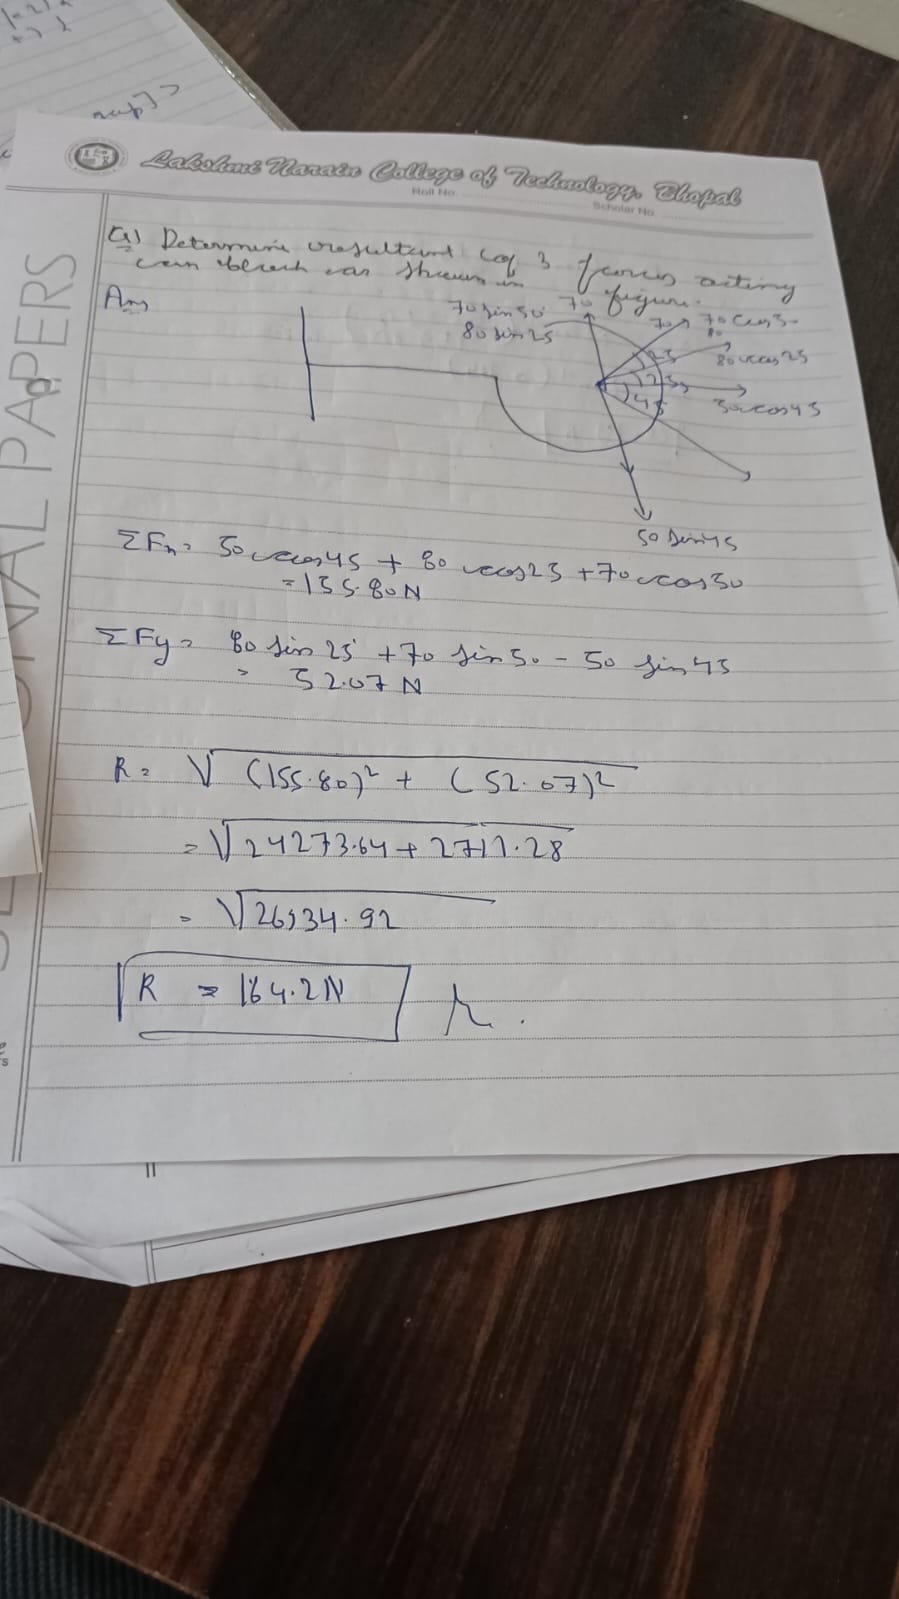 Lakshmi Narain College of Technology, Bhopal
Roll No.
Scholar No.
Q) Determine resultant of 3 forces acting
as shown in figure.
Ans
70 sin 50 70
80 sin 25
80 cos 25
50 cos 45
25
45
50 sin 45
ΣFx = 50 cos 45 + 80 cos 25 + 70 cos 50
= 155.80 N
ΣFy = 80 sin 25 + 70 sin 50 - 50 sin 45
= 52.07 N
R = √(155.80)² + (52.07)²
= √24273.64 + 2711.28
= √26934.92
R = 164.2 N